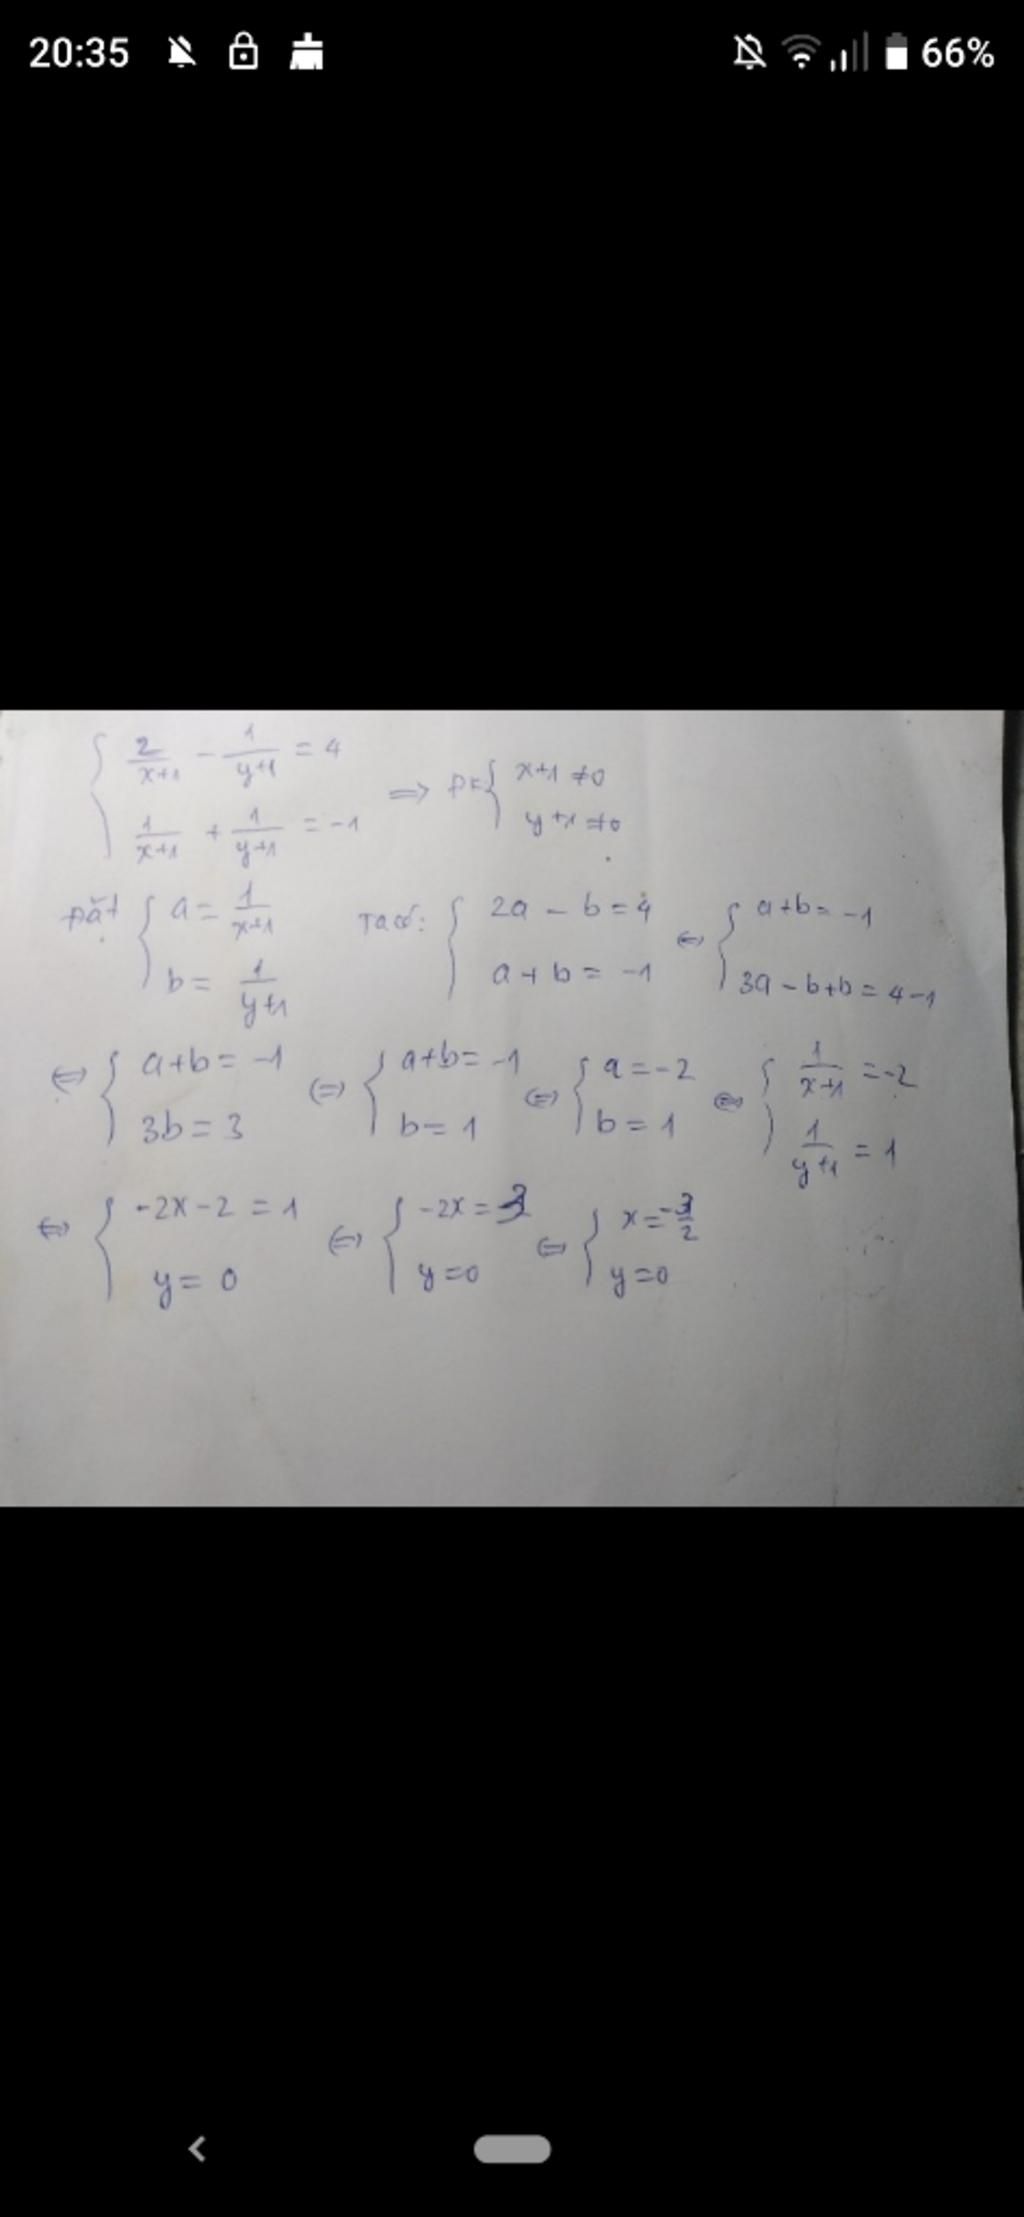 20:35 66%
{ 2/(x+1) - 1/(y+1) = 4
1/(x+1) + 1/(y+1) = -1 ⇒ ĐK { x+1 ≠ 0
y+1 ≠ 0
Đặt { a = 1/(x+1)
b = 1/(y+1) Ta có: { 2a - b = 4
a + b = -1 ⇔ { a+b = -1
3a - b + b = 4 - 1
⇔ { a+b = -1
3b = 3 ⇔ { a+b = -1
b = 1 ⇔ { a = -2
b = 1 ⇔ { 1/(x+1) = -2
1/(y+1) = 1
⇔ { -2x - 2 = 1
y = 0 ⇔ { -2x = 3
y = 0 ⇔ { x = -3/2
y = 0